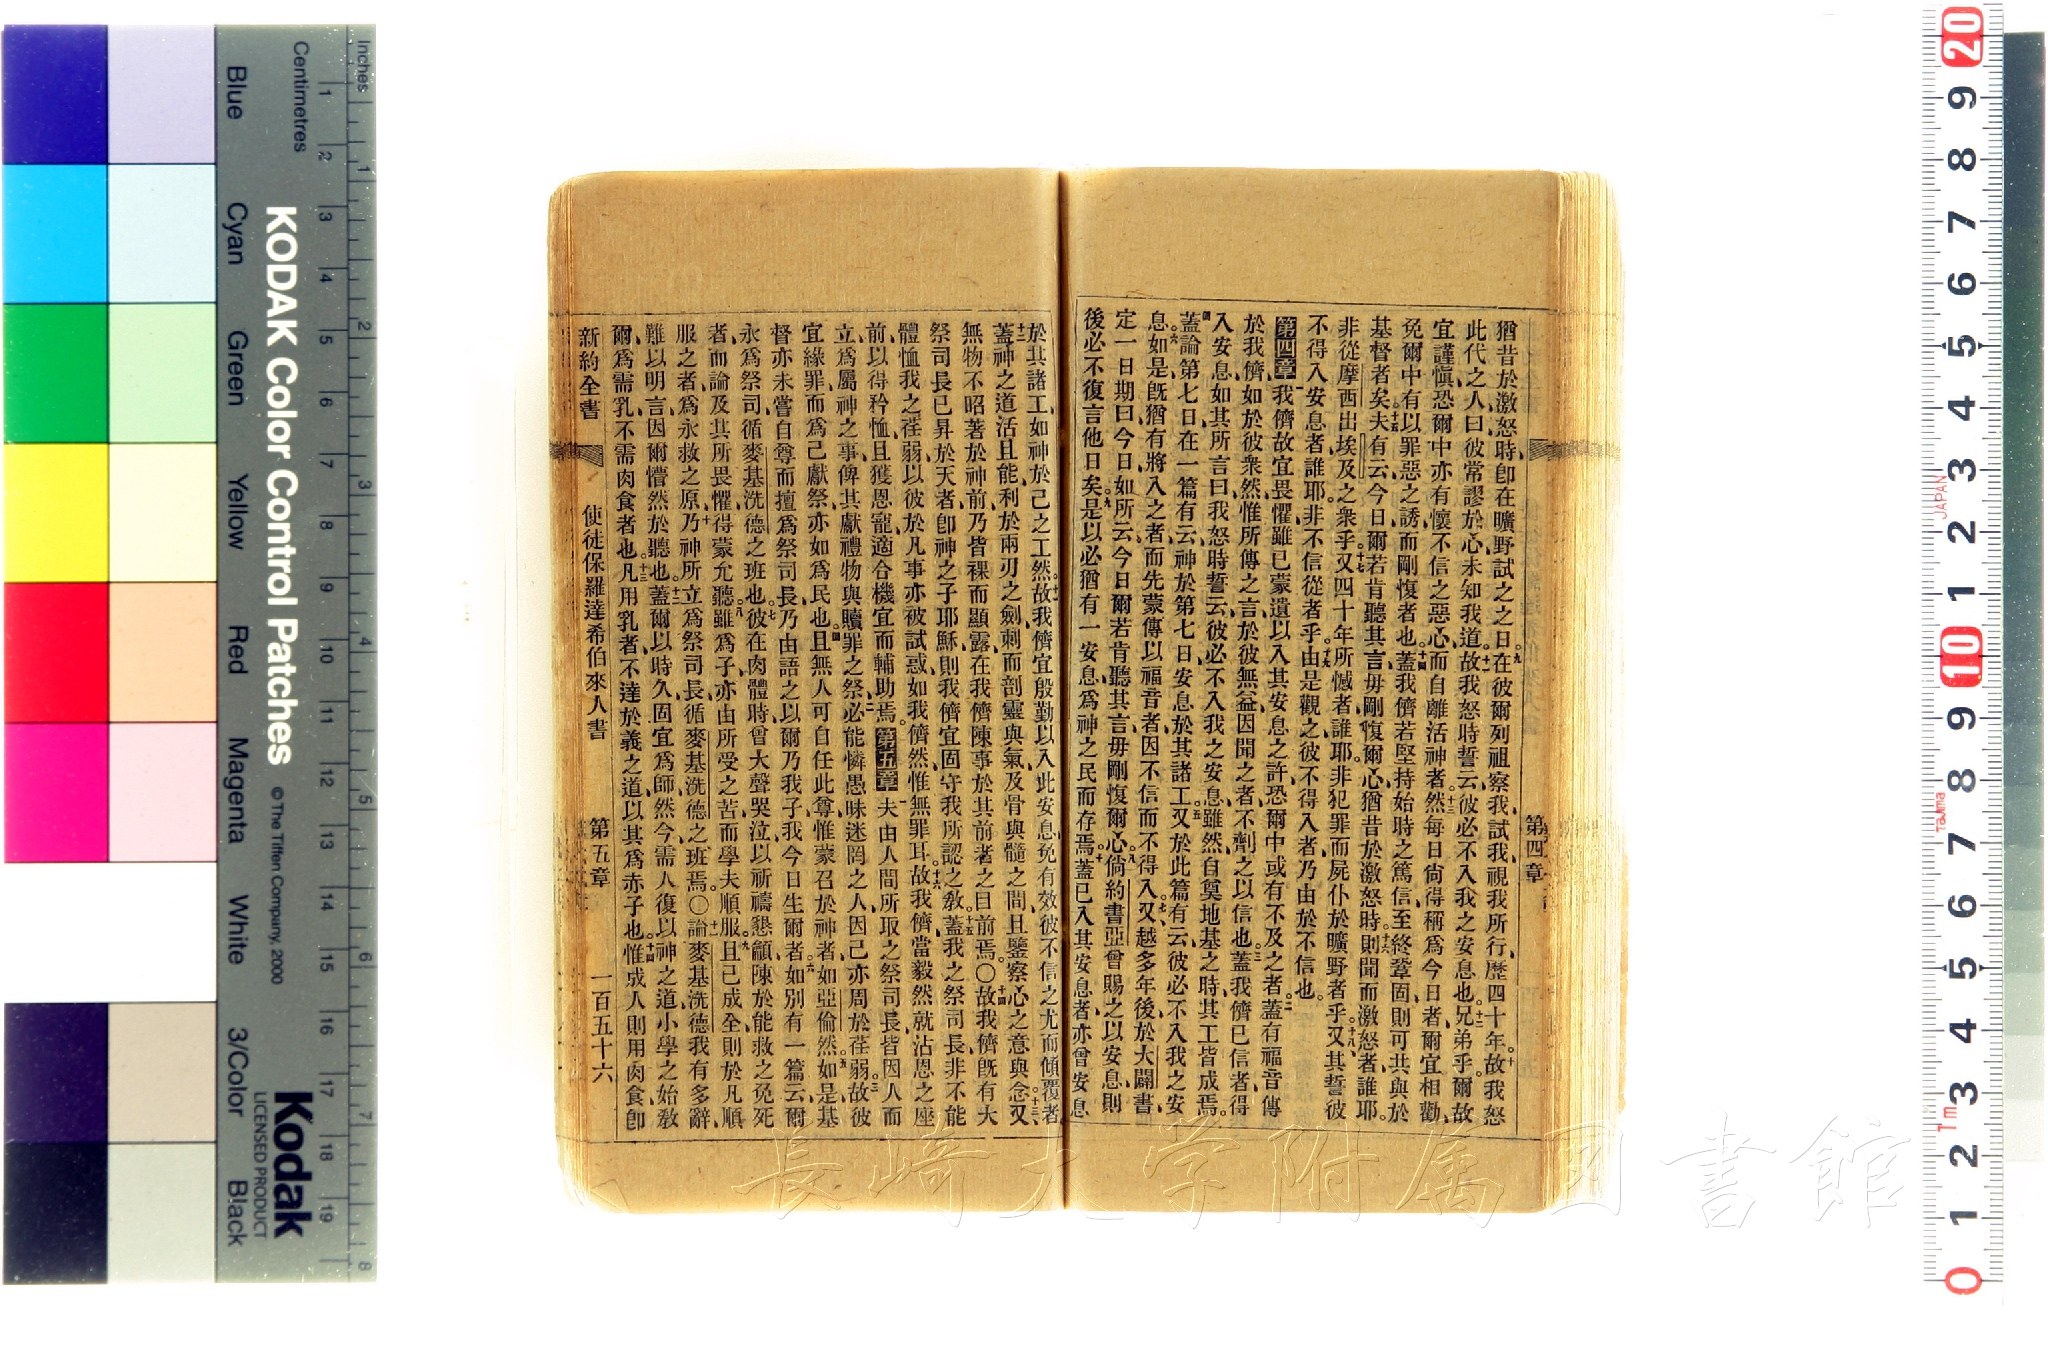 猶昔於激怒時、卽在曠野試之之日、在彼爾列祖察我、試我、視我所行、歷四十年、故我怒
此代之人曰、彼常謬於心、未知我道、故我怒時誓云、彼必不入我之安息也、兄弟乎、爾故
宜謹愼、恐爾中亦有懷不信之惡心、而自離活神者、然每日尙得稱爲今日者、爾宜相勸、
免爾中有以罪惡之誘而剛愎者也、蓋我儕若堅持始時之篤信至終鞏固、則可共與於
基督者矣、夫有云、今日爾若肯聽其言、毋剛愎爾心、猶昔於激怒時、則聞而激怒者誰耶、
非從摩西出埃及之衆乎、又四十年所憾者誰耶、非犯罪而屍仆於曠野者乎、又其誓彼
不得入安息者誰耶、非不信從者乎、由是觀之、彼不得入者、乃由於不信也、
第四章 我儕故宜畏懼、雖已蒙遺以入其安息之許、恐爾中或有不及之者、蓋有福音傳
於我儕、如於彼衆然、惟所傳之言、於彼無益、因聞之者、不劑之以信也、蓋我儕已信者、得
入安息、如其所言曰、我怒時誓云、彼必不入我之安息、雖然自奠地基之時、其工皆成焉、
蓋論第七日、在一篇有云、神於第七日安息於其諸工、又於此篇有云、彼必不入我之安
息、如是旣猶有將入之者、而先蒙傳以福音者、因不信而不得入、又越多年後、於大闢書、
定一日期曰、今日、如所云、今日爾若肯聽其言、毋剛愎爾心、倘約書亞曾賜之以安息、則
後必不復言他日矣、是以必猶有一安息、爲神之民而存焉、蓋已入其安息者、亦曾安息
第四章
於其諸工、如神於己之工然、故我儕宜殷勤以入此安息、免有效彼不信之尤而傾覆者、
蓋神之道活且能、利於兩刃之劍、刺而剖靈與氣、及骨與髓之間、且鑒察心之意與念、又
無物不昭著於神前、乃皆裸而顯露、在我儕陳事於其前者之目前焉、〇故我儕旣有大
祭司長已昇於天者、卽神之子耶穌、則我儕宜固守我所認之敎、蓋我之祭司長、非不能
體恤我之荏弱、以彼於凡事亦被試惑、如我儕然、惟無罪耳、故我儕當毅然就沾恩之座
前、以得矜恤、且獲恩寵、適合機宜而輔助焉、第五章 夫由人間所取之祭司長、皆因人而
立、爲屬神之事、俾其獻禮物與贖罪之祭、必能憐愚昧迷罔之人、因己亦周於荏弱、故彼
宜緣罪而爲己獻祭、亦如爲民也、且無人可自任此尊、惟蒙召於神者、如亞倫然、如是基
督亦未嘗自尊而擅爲祭司長、乃由語之以爾乃我子、我今日生爾者、如別有一篇云、爾
永爲祭司、循麥基洗德之班也、彼在肉體時、曾大聲哭泣、以祈禱懇籲陳於能救之免死
者、而論及其所畏懼、得蒙允聽、雖爲子、亦由所受之苦而學夫順服、且已成全、則於凡順
服之者、爲永救之原、乃神所立爲祭司長、循麥基洗德之班焉、〇論麥基洗德我有多辭、
難以明言、因爾懵然於聽也、蓋爾以時久、固宜爲師、然今需人復以神之道小學之始敎
爾、爲需乳不需肉食者也、凡用乳者、不達於義之道、以其爲赤子也、惟成人則用肉食、卽
新約全書 使徒保羅達希伯來人書 第五章 一百五十六
Inches
Centimetres
KODAK Color Control Patches © The Tiffen Company, 2000
Kodak
LICENSED PRODUCT
Blue Cyan Green Yellow Red Magenta White 3/Color Black
JAPAN
Tajima
Tm
長崎大学附属図書館